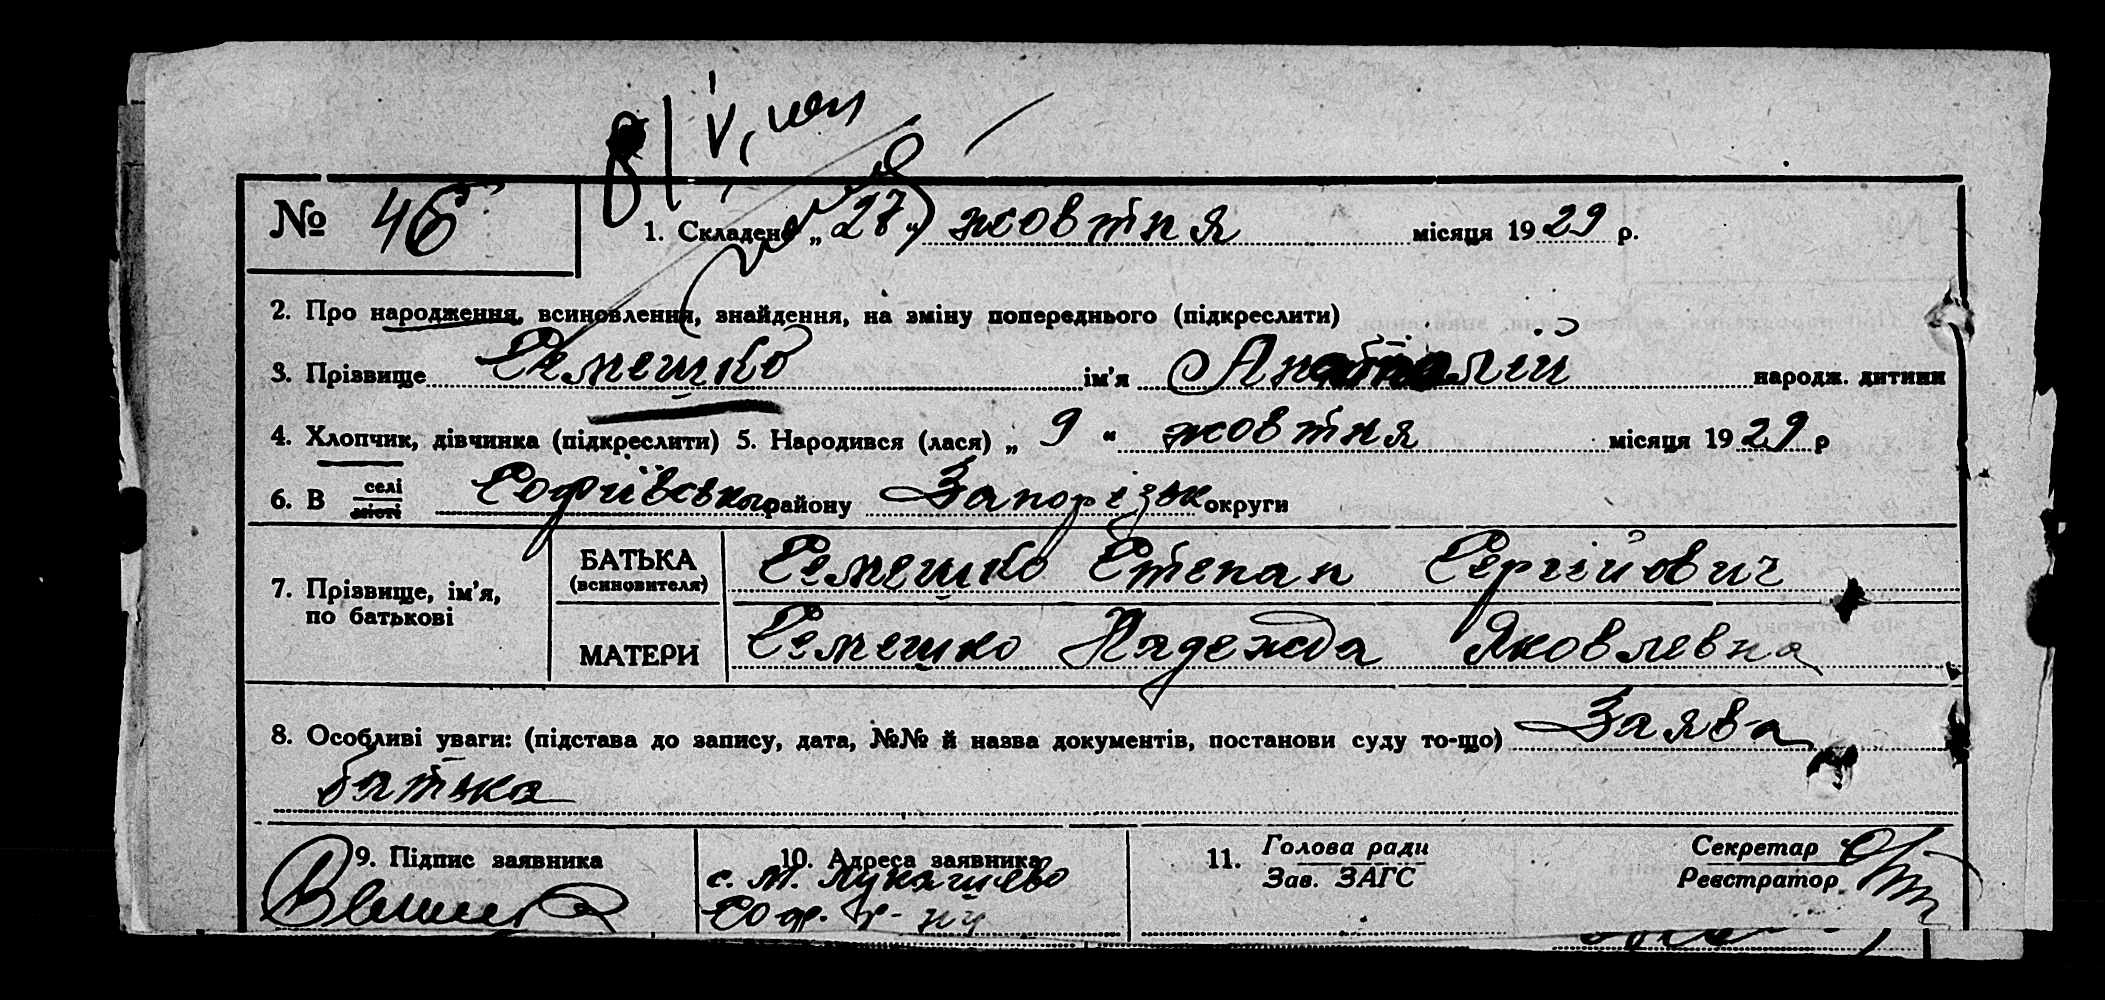 № 46
1. Складено „27“ жовтня місяця 1929 р.
2. Про народження, всиновлення, знайдення, на зміну попереднього (підкреслити)
3. Прізвище Семешко ім’я Анатолій народж. дитини
4. Хлопчик, дівчинка (підкреслити) 5. Народився (лася) „9“ жовтня місяця 1929 р
6. В селі місті Софіївського району Запорізьк округи
7. Прізвище, ім’я, по батькові
БАТЬКА (всиновителя) Семешко Степан Сергійович
МАТЕРИ Семешко Надежда Яковлевна
8. Особливі уваги: (підстава до запису, дата, №№ й назва документів, постанови суду то-що) Заява
батька
9. Підпис заявника
10. Адреса заявника
с. М. Лукашево
Соф. р-ну
11. Голова ради
Зав. ЗАГС
Секретар
Реєстратор